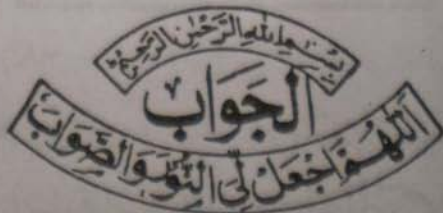 بِسْمِ اللّٰهِ الرَّحْمٰنِ الرَّحِيْمِ
اَلْجَوَاب
اَللّٰهُمَّ اجْعَلْ لِّی النُّوْرَ وَالصَّوَابَ